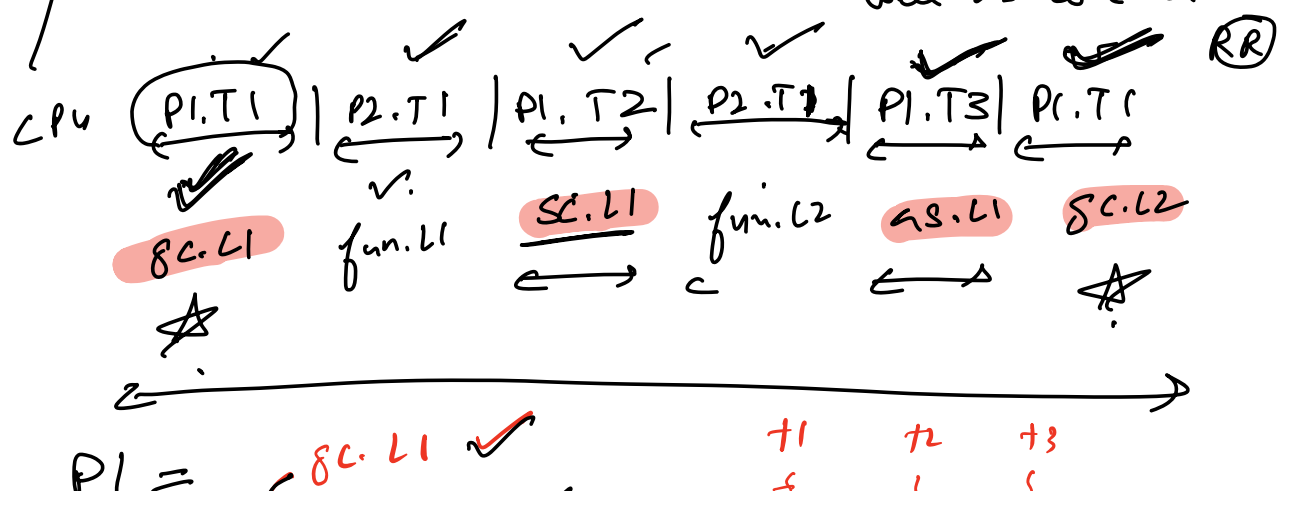 RR
CPU P1.T1 | P2.T1 | P1.T2 | P2.T1 | P1.T3 | P1.T1
gc.L1 fun.L1 sc.L1 fun.L2 as.L1 gc.L2
gc.L1 t1 t2 t3
P1 =